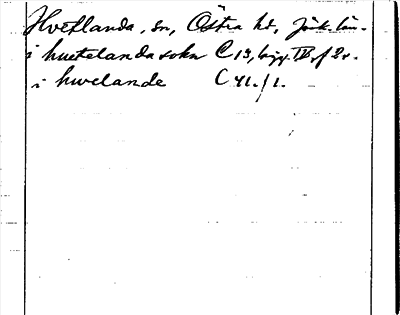 Hvetlanda, sn, Östra hd, Jönk. län.
i huetelanda sokn C 19, lägg. IV, f 2 v.
i hwelande C 41. f 1.